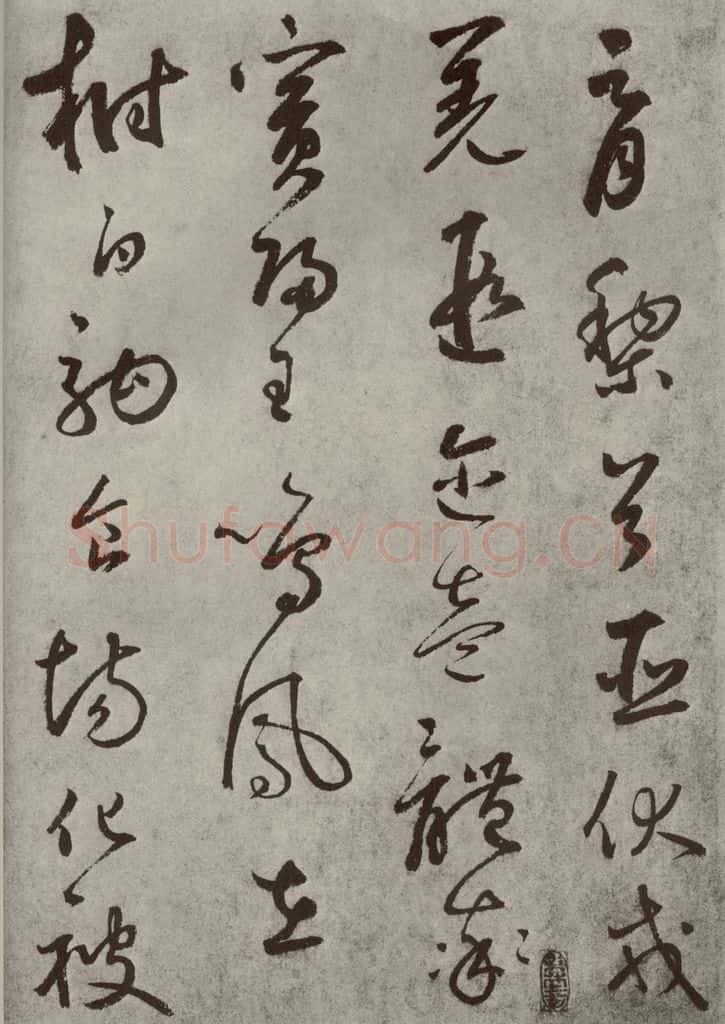 育黎首臣伏戎
羌遐邇壹體率
賓歸王鳴鳳在
樹白駒食場化被
Shufawang.cn